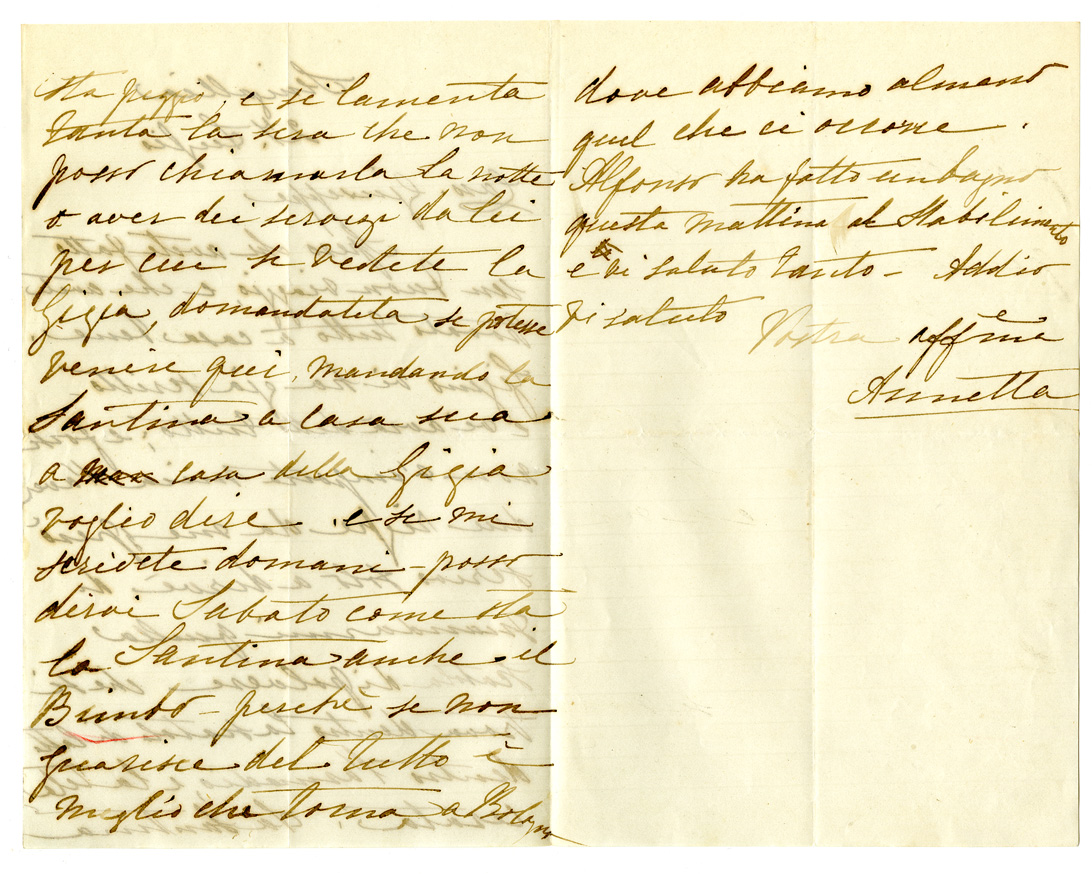 sta peggio, e si lamenta
tanto la sera che non
posso chiamarla la notte
o aver dei servigi da lei
per cui se vedete la
Gigia, domandatela se potesse
venire qui, mandando la
Santina a casa sua
a casa della Gigia
voglio dire e se mi
scrivete domani - posso
dirvi Sabato come sta
la Santina anche il
Bimbo - perchè se non
guarisce del tutto è
meglio che torna a Bologna
dove abbiamo almeno
quel che ci occorre.
Alfonso ha fatto un bagno
questa mattina al Stabilimento
e vi saluto tanto - Addio
vi saluto
Vostra affma
Annetta